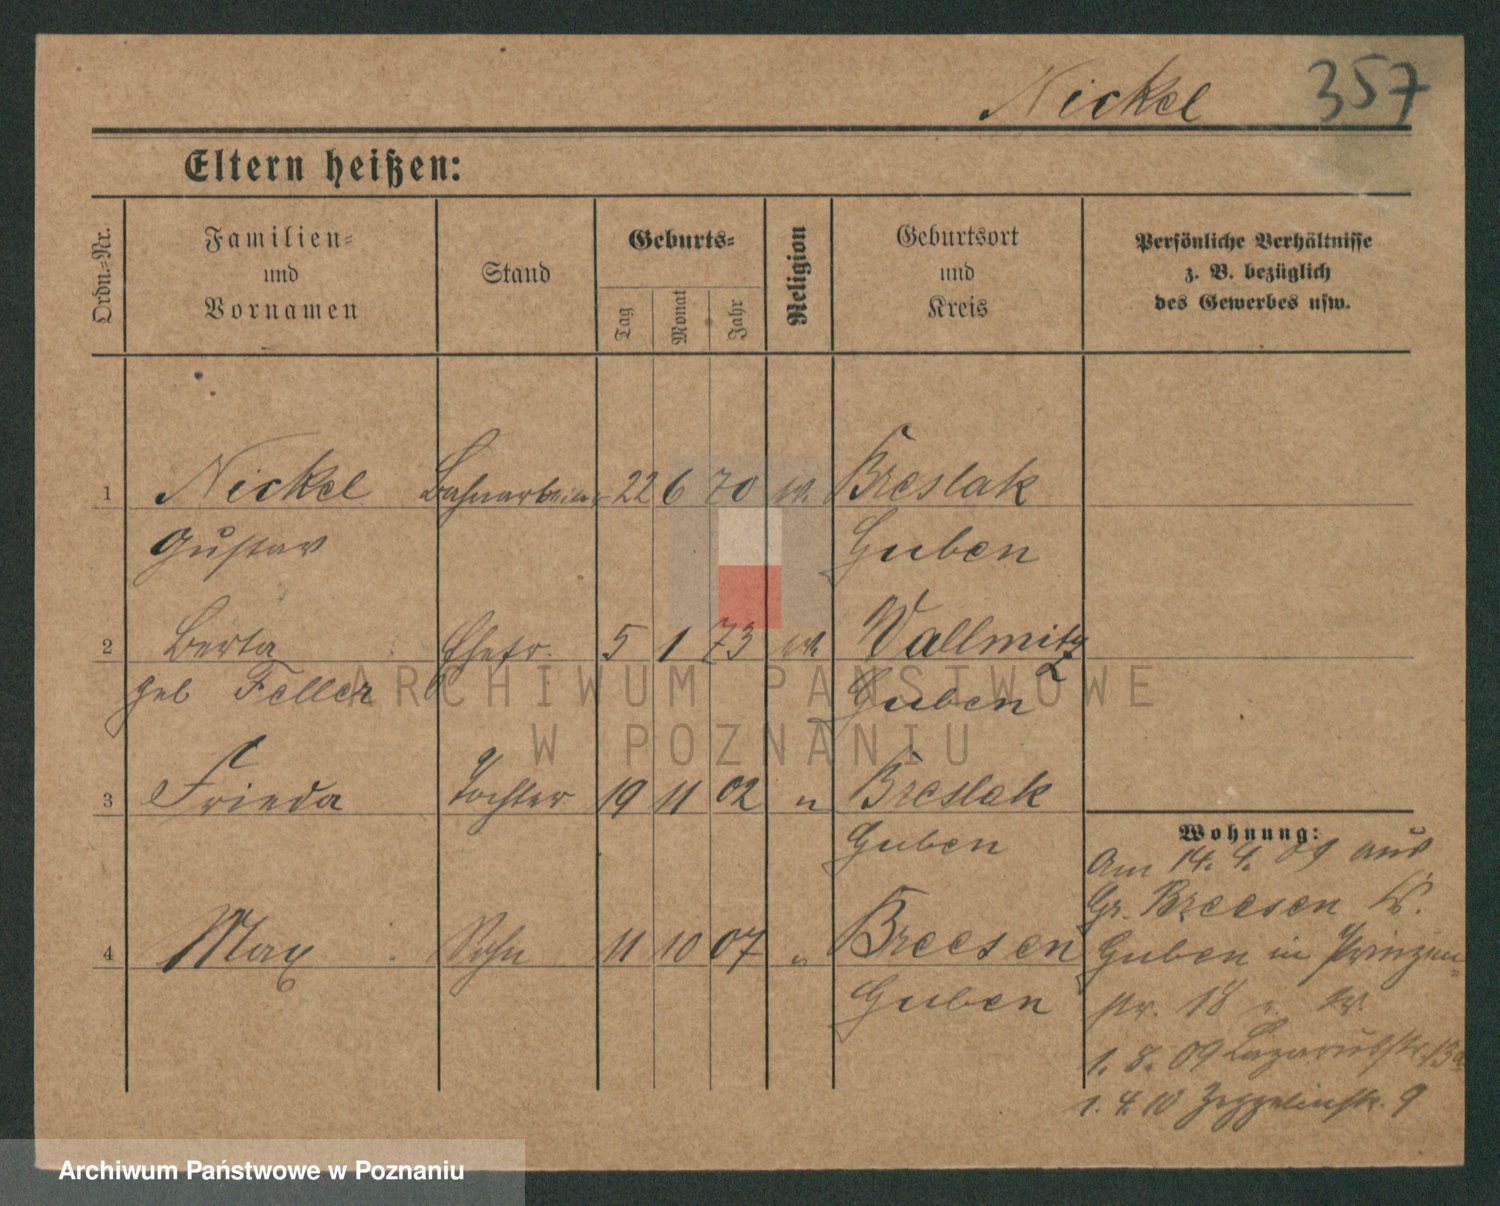 Nickel 357
Eltern heißen:
Ordn.-Nr. Familien- und Vornamen Stand Geburts- Tag Monat Jahr Religion Geburtsort und Kreis Persönliche Verhältnisse z. B. bezüglich des Gewerbes usw.
1 Nickel Bahnarbeiter 22 6 70 ev. Breslak
Gustav Guben
2 Berta Ehefr. 5 1 73 ev. Wallmitz
geb Feller Guben
3 Frieda Tochter 19 11 02 " Breslak
Guben
4 Max Sohn 11 10 07 " Breesen
Guben
Wohnung:
Am 14. 4. 09 aus
Gr. Breesen K.
Guben in Prinzen-
str. 18
1. 8. 09 Lazarusstr. 13a
1. 4. 10 Zeppelinstr. 9
ARCHIWUM PAŃSTWOWE
W POZNANIU
Archiwum Państwowe w Poznaniu